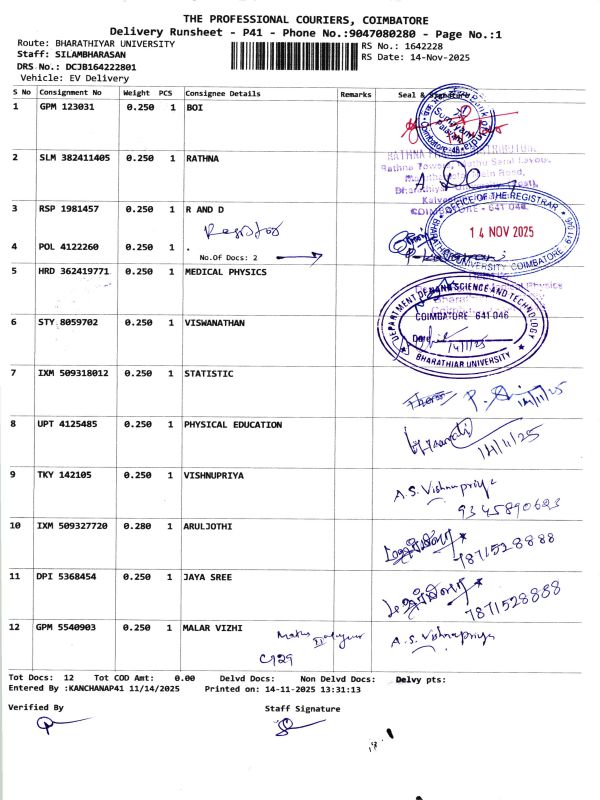 THE PROFESSIONAL COURIERS, COIMBATORE
Delivery Runsheet - P41 - Phone No.:9047080280 - Page No.:1
Route: BHARATHIYAR UNIVERSITY
RS No.: 1642228
Staff: SILAMBHARASAN
RS Date: 14-Nov-2025
DRS No.: DCJB164222801
Vehicle: EV Delivery
S No Consignment No Weight PCS Consignee Details Remarks Seal & Signature
1 GPM 123031 0.250 1 BOI
2 SLM 382411405 0.250 1 RATHNA
3 RSP 1981457 0.250 1 R AND D
Registor
OFFICE OF THE REGISTRAR
14 NOV 2025
BHARATHIAR UNIVERSITY COIMBATORE 641046
4 POL 4122260 0.250 1 .
No.Of Docs: 2
5 HRD 362419771 0.250 1 MEDICAL PHYSICS
DEPARTMENT OF NANO SCIENCE AND TECHNOLOGY
COIMBATORE 641 046
Date
14/11/25
BHARATHIAR UNIVERSITY
6 STY 8059702 0.250 1 VISWANATHAN
7 IXM 509318012 0.250 1 STATISTIC
14/11/25
8 UPT 4125485 0.250 1 PHYSICAL EDUCATION
14/11/25
9 TKY 142105 0.250 1 VISHNUPRIYA
A.S. Vishnupriya
9345890623
10 IXM 509327720 0.280 1 ARULJOTHI
7871528888
11 DPI 5368454 0.250 1 JAYA SREE
7871528888
12 GPM 5540903 0.250 1 MALAR VIZHI
Maths
A.S. Vishnupriya
Tot Docs: 12 Tot COD Amt: 0.00 Delvd Docs: Non Delvd Docs: Delvy pts:
Entered By :KANCHANAP41 11/14/2025 Printed on: 14-11-2025 13:31:13
Verified By Staff Signature